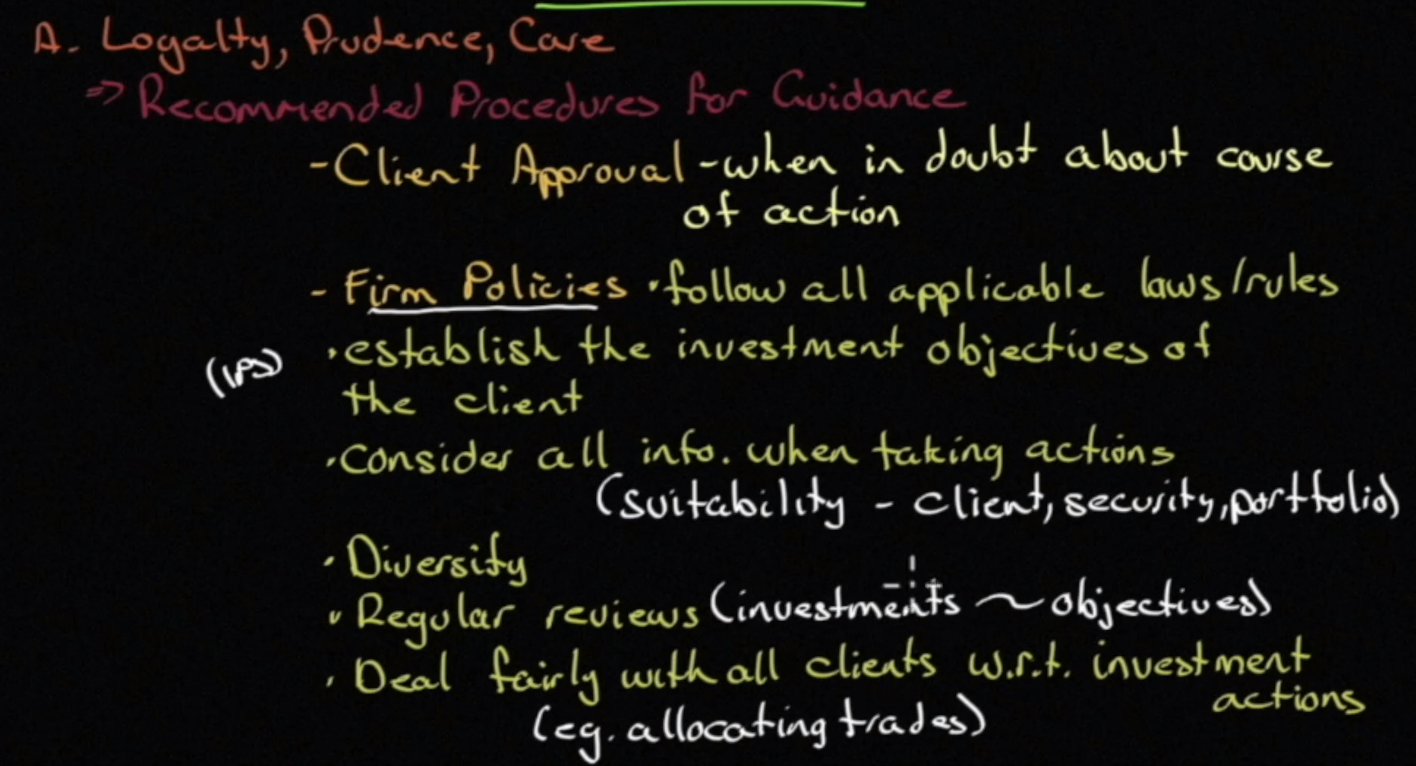 A. Loyalty, Prudence, Care
⇒ Recommended Procedures for Guidance
- Client Approval - when in doubt about course
of action
- Firm Policies • follow all applicable laws/rules
(IPS) • establish the investment objectives of
the client
• consider all info. when taking actions
(suitability - client, security, portfolio)
• Diversify
• Regular reviews (investments ~ objectives)
• Deal fairly with all clients w.r.t. investment
actions
(eg. allocating trades)